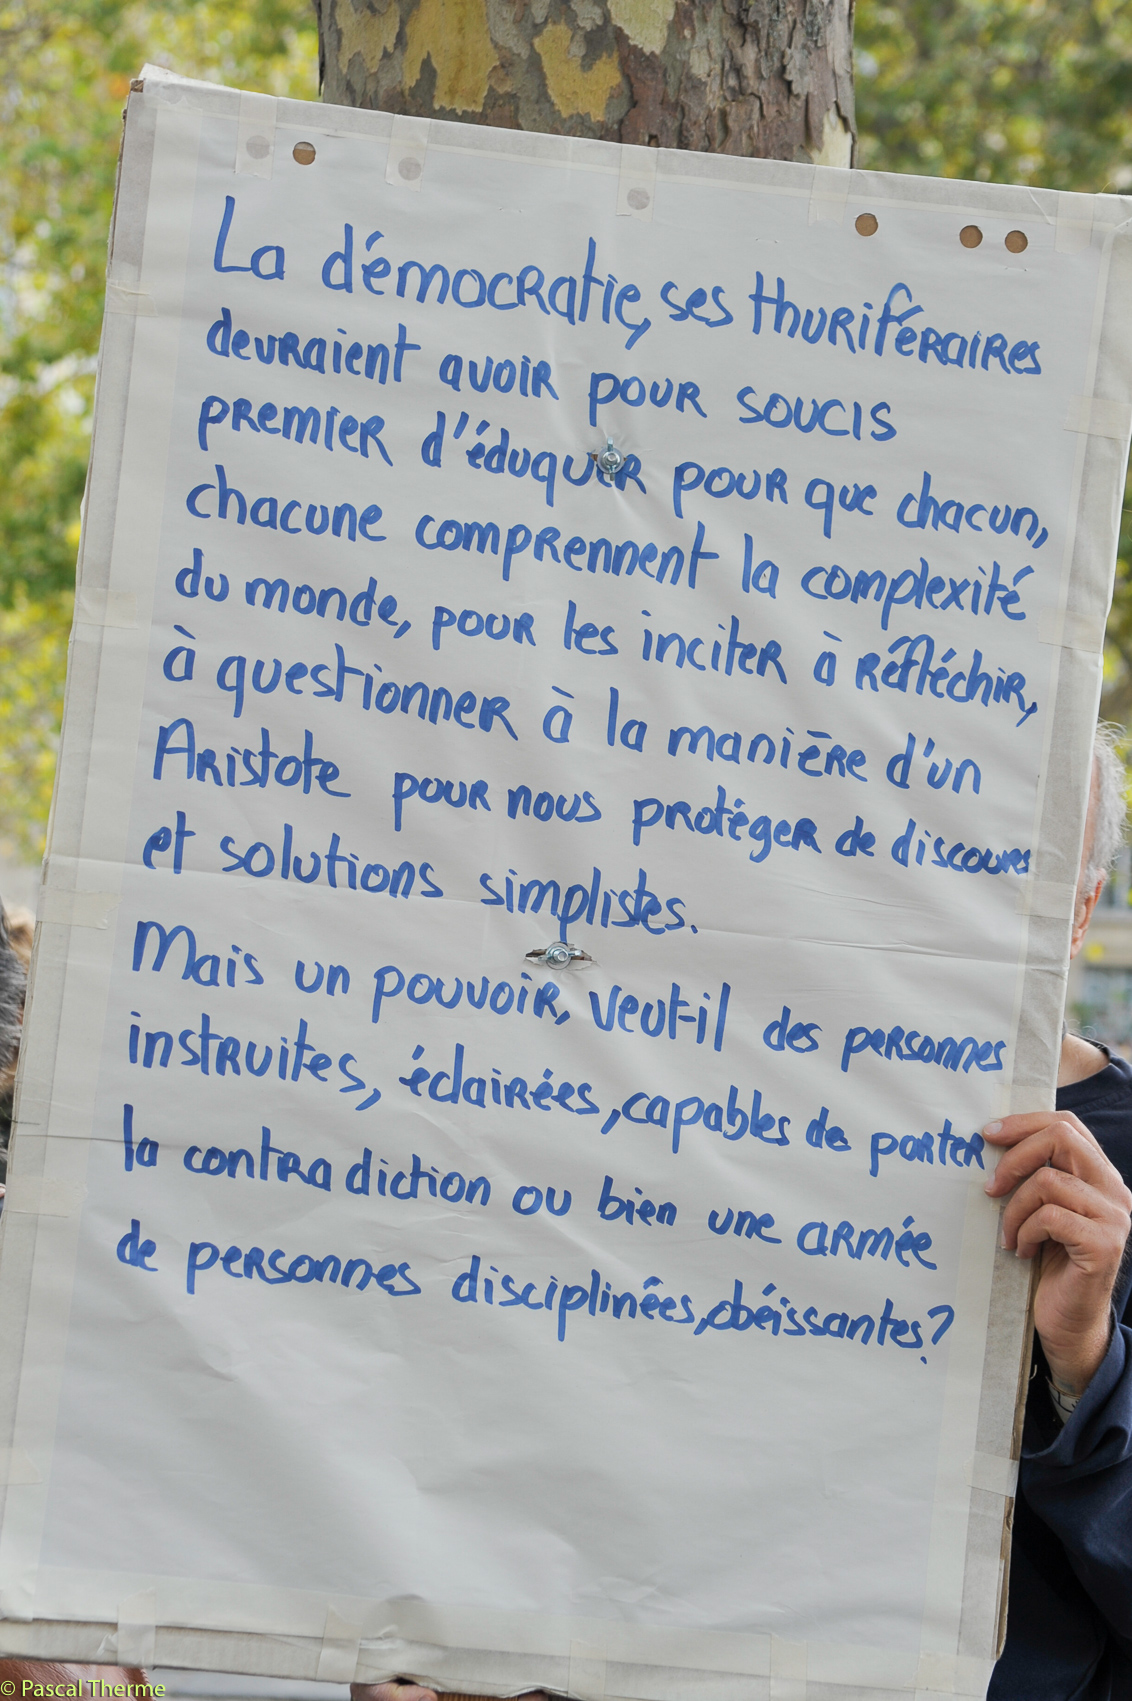 La démocratie, ses thuriféraires
devraient avoir pour soucis
premier d'éduquer pour que chacun,
chacune comprennent la complexité
du monde, pour les inciter à réfléchir,
à questionner à la manière d'un
Aristote pour nous protéger de discours
et solutions simplistes.
Mais un pouvoir, veut-il des personnes
instruites, éclairées, capables de porter
la contradiction ou bien une armée
de personnes disciplinées, obéissantes?
© Pascal Therme